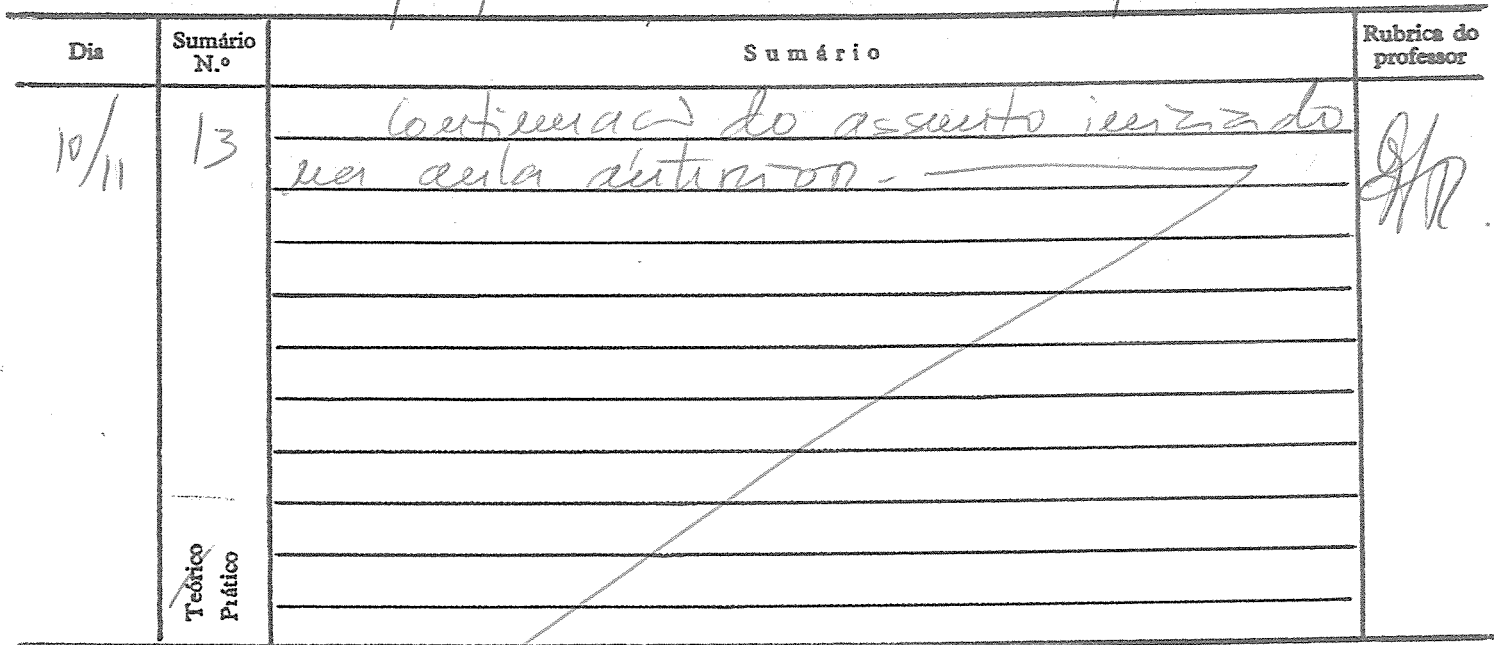 Dia
Sumário
N.º
Sumário
Rubrica do
professor
10/11
13
Continuação do assunto iniciado
na aula anterior. —
Teórico
Prático